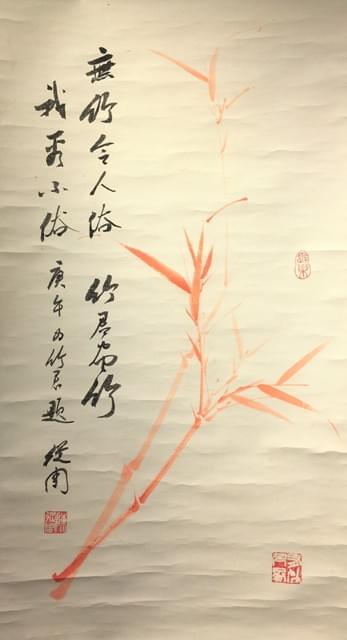 無竹令人俗 竹君寫竹
我看不俗 庚午为竹君題 從周